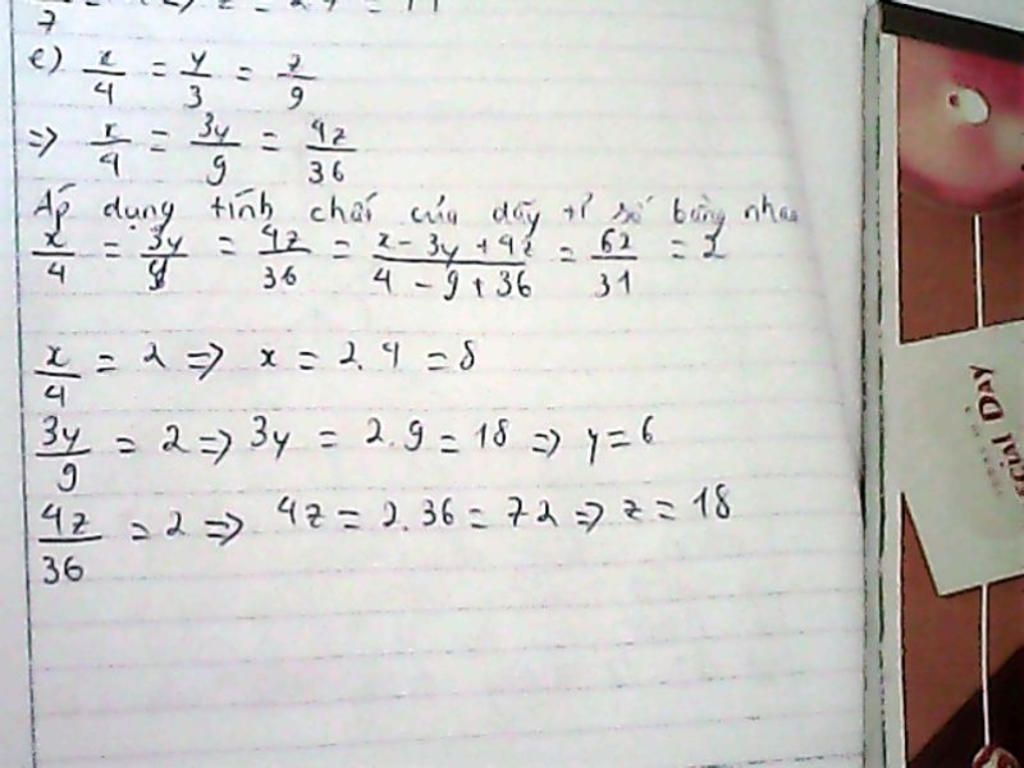 7
e) x/4 = y/3 = z/9
=> x/4 = 3y/9 = 4z/36
Áp dụng tính chất của dãy tỉ số bằng nhau
x/4 = 3y/9 = 4z/36 = x - 3y + 4z / 4 - 9 + 36 = 62/31 = 2
x/4 = 2 => x = 2.4 = 8
3y/9 = 2 => 3y = 2.9 = 18 => y = 6
4z/36 = 2 => 4z = 2.36 = 72 => z = 18
ecial DAY